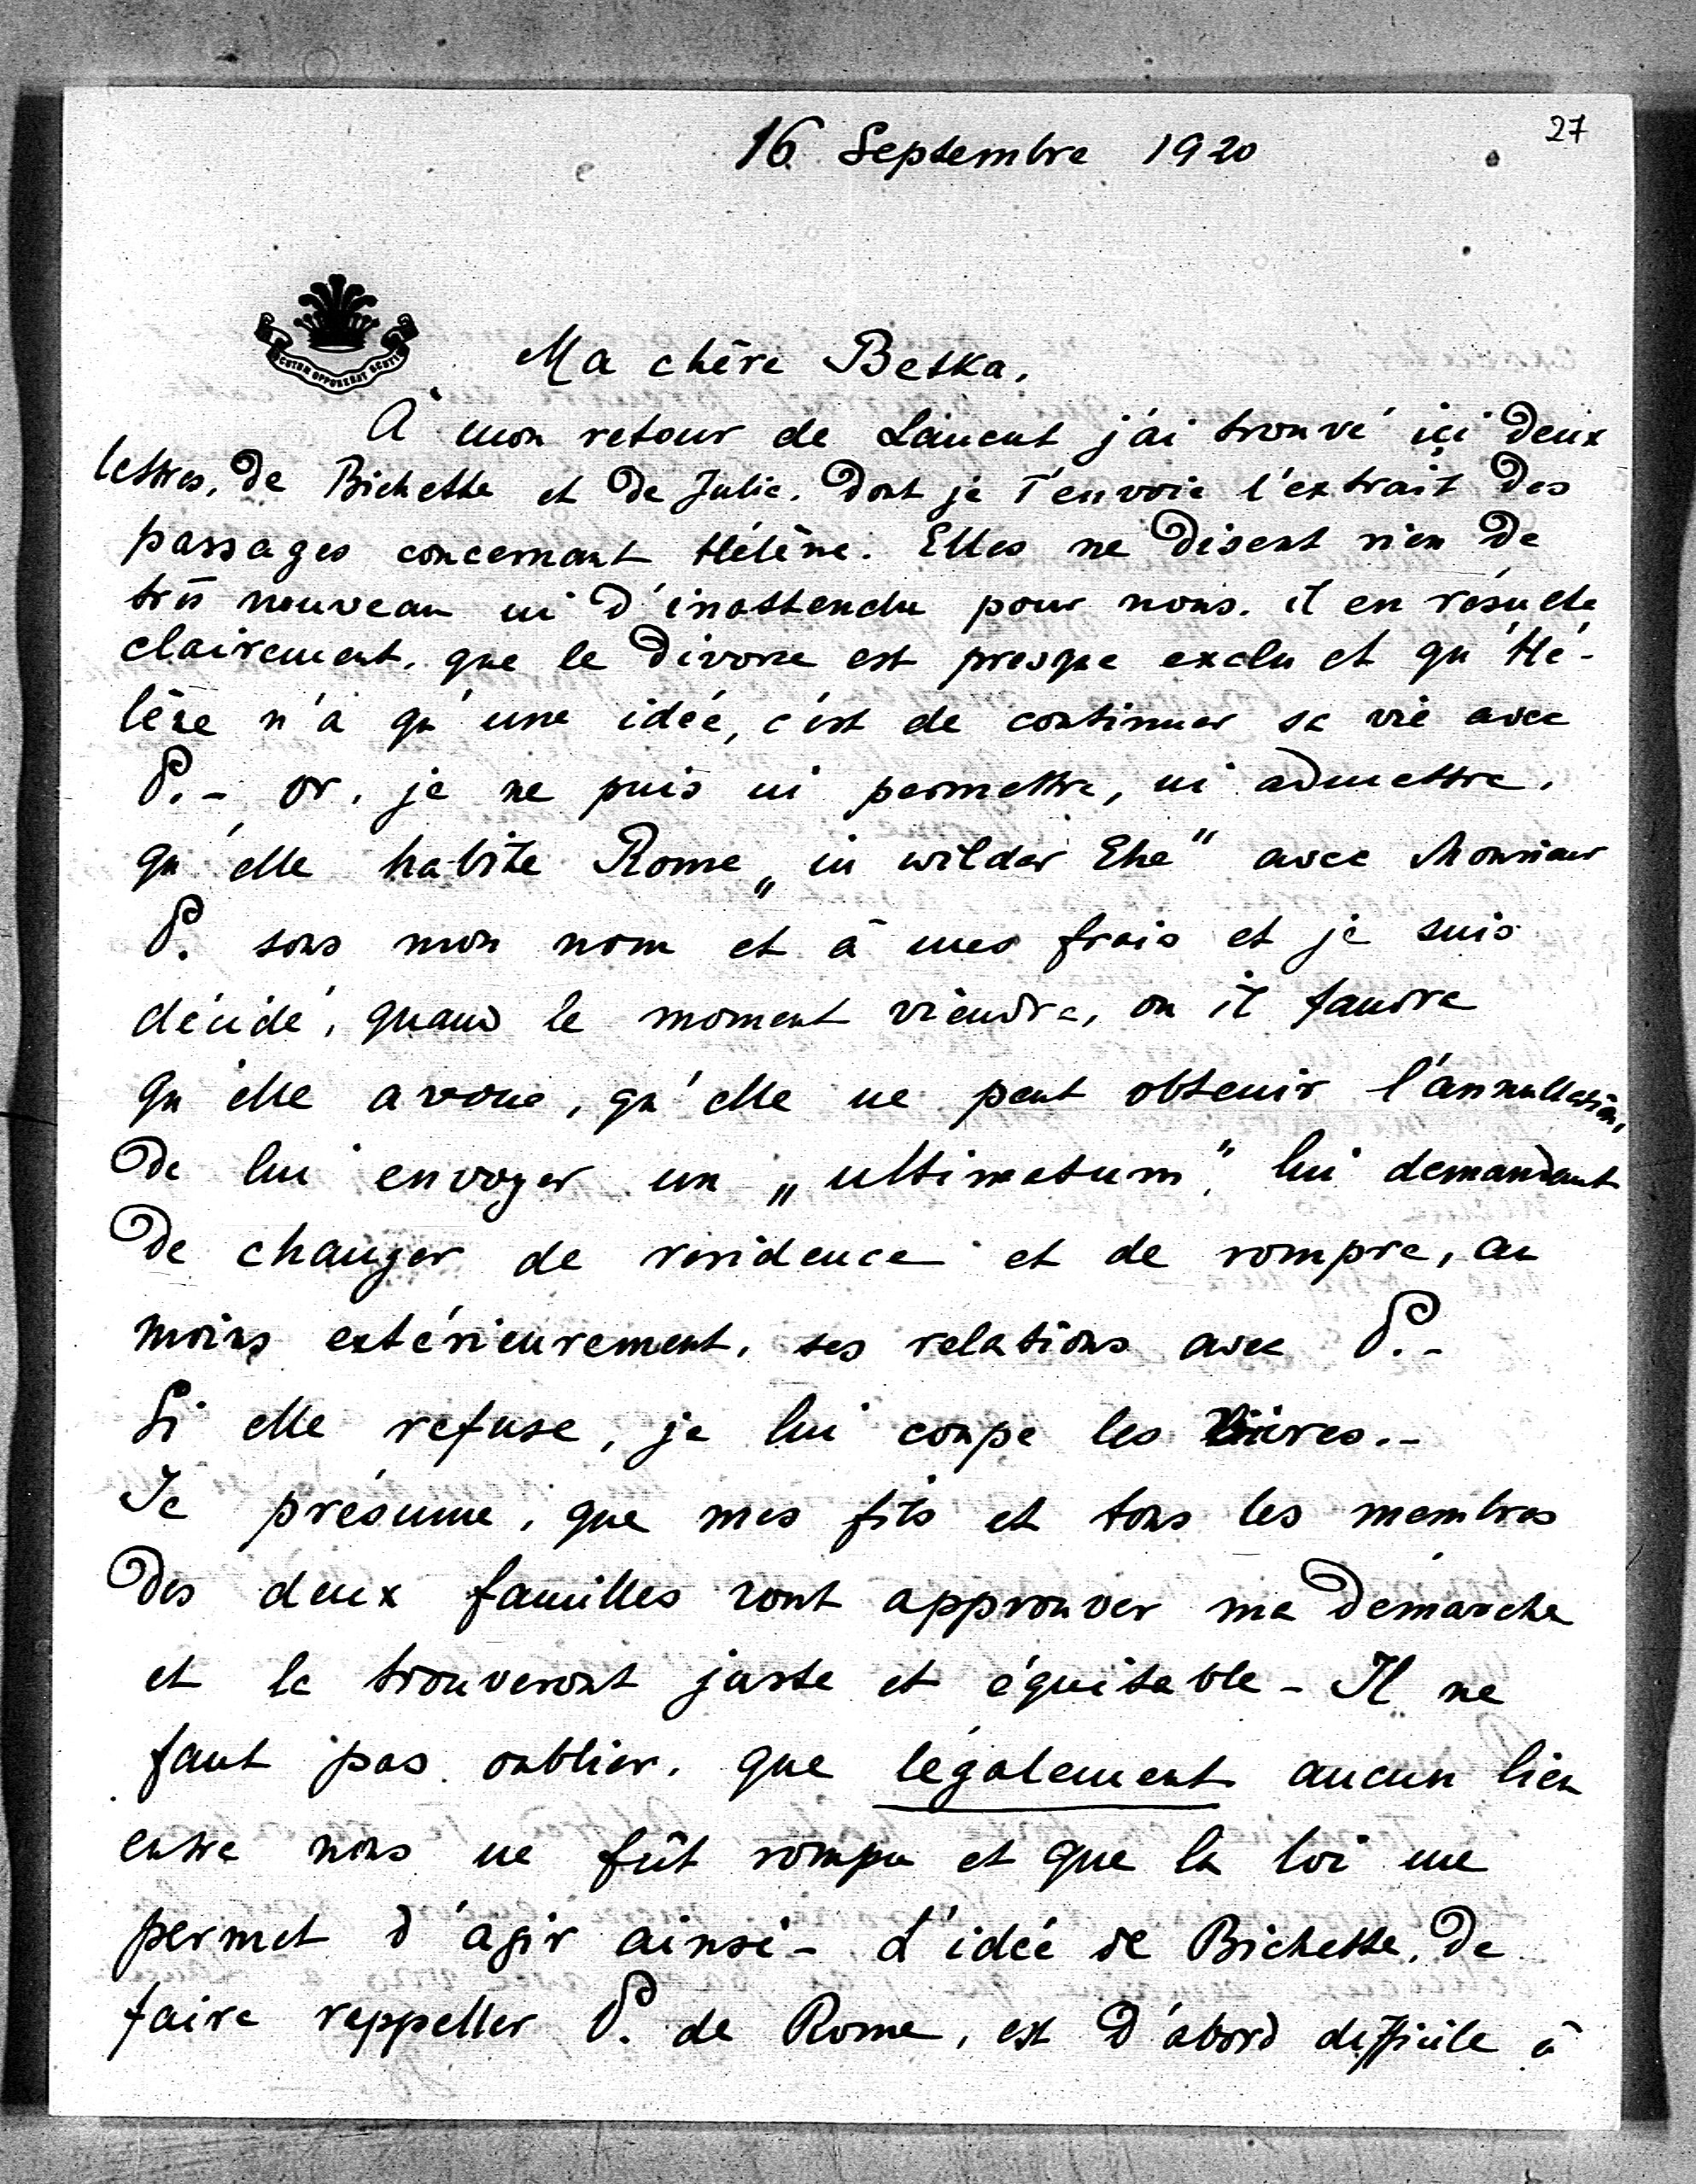 27
16 Septembre 1920
SCUTUM OPPONEBAT SCUTIS
Ma chère Betka,
A mon retour de Lancut j'ai trouvé ici deux
lettres, de Bichette et de Julie, dont je t'envoie l'extrait des
passages concernant Hélène. Elles ne disent rien de
très nouveau ni d'inattendu pour nous. il en résulte
clairement, que le divorce est presque exclu et qu'Hé-
lène n'a qu'une idée, c'est de continuer sa vie avec
P. - or, je ne puis ni permettre, ni admettre,
qu'elle habite Rome „in wilder Ehe" avec Monsieur
P. sous mon nom et à mes frais et je suis
décidé, quand le moment viendra, ou il faudra
qu'elle avoue, qu'elle ne peut obtenir l'annullation,
de lui envoyer un „ultimatum", lui demandant
de changer de residence et de rompre, au
moins extérieurement, ses relations avec P. -
Si elle refuse, je lui coupe les vivres. -
Je présume, que mes fils et tous les membres
des deux familles vont approuver ma démarche
et la trouveront juste et équitable - Il ne
faut pas oublier, que légalement aucun lien
entre nous ne fût rompu et que la loi me
permet d'agir ainsi - L'idée de Bichette, de
faire rappeller P. de Rome, est d'abord difficile à